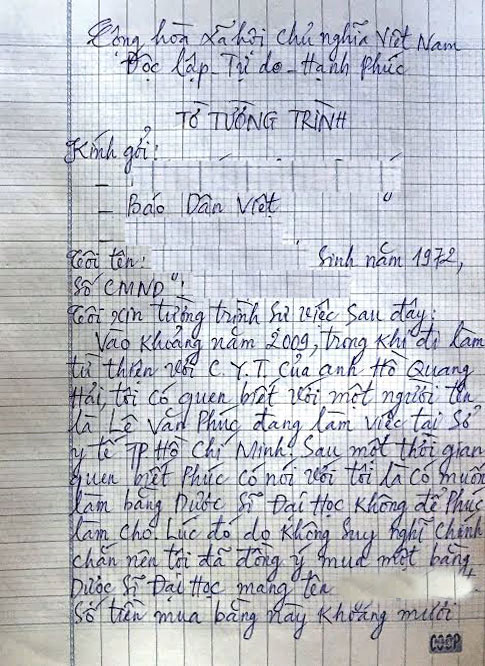 Cộng hòa xã hội chủ nghĩa Việt Nam
Độc lập - Tự do - Hạnh phúc
TỜ TƯỜNG TRÌNH
Kính gởi:
- Báo Dân Việt
Tôi tên: Sinh năm 1972,
Số CMND:
Tôi xin tường trình sự việc sau đây:
Vào khoảng năm 2009, trong khi đi làm
từ thiện với C.Y.T. của anh Hồ Quang
Hải, tôi có quen biết với một người tên
là Lê Văn Phúc đang làm việc tại Sở
y tế TP Hồ Chí Minh. Sau một thời gian
quen biết Phúc có nói với tôi là có muốn
làm bằng Dược Sĩ Đại Học không để Phúc
làm cho. Lúc đó do không suy nghĩ chính
chắn nên tôi đã đồng ý mua một bằng
Dược Sĩ Đại Học mang tên
Số tiền mua bằng này khoảng mười
COOP